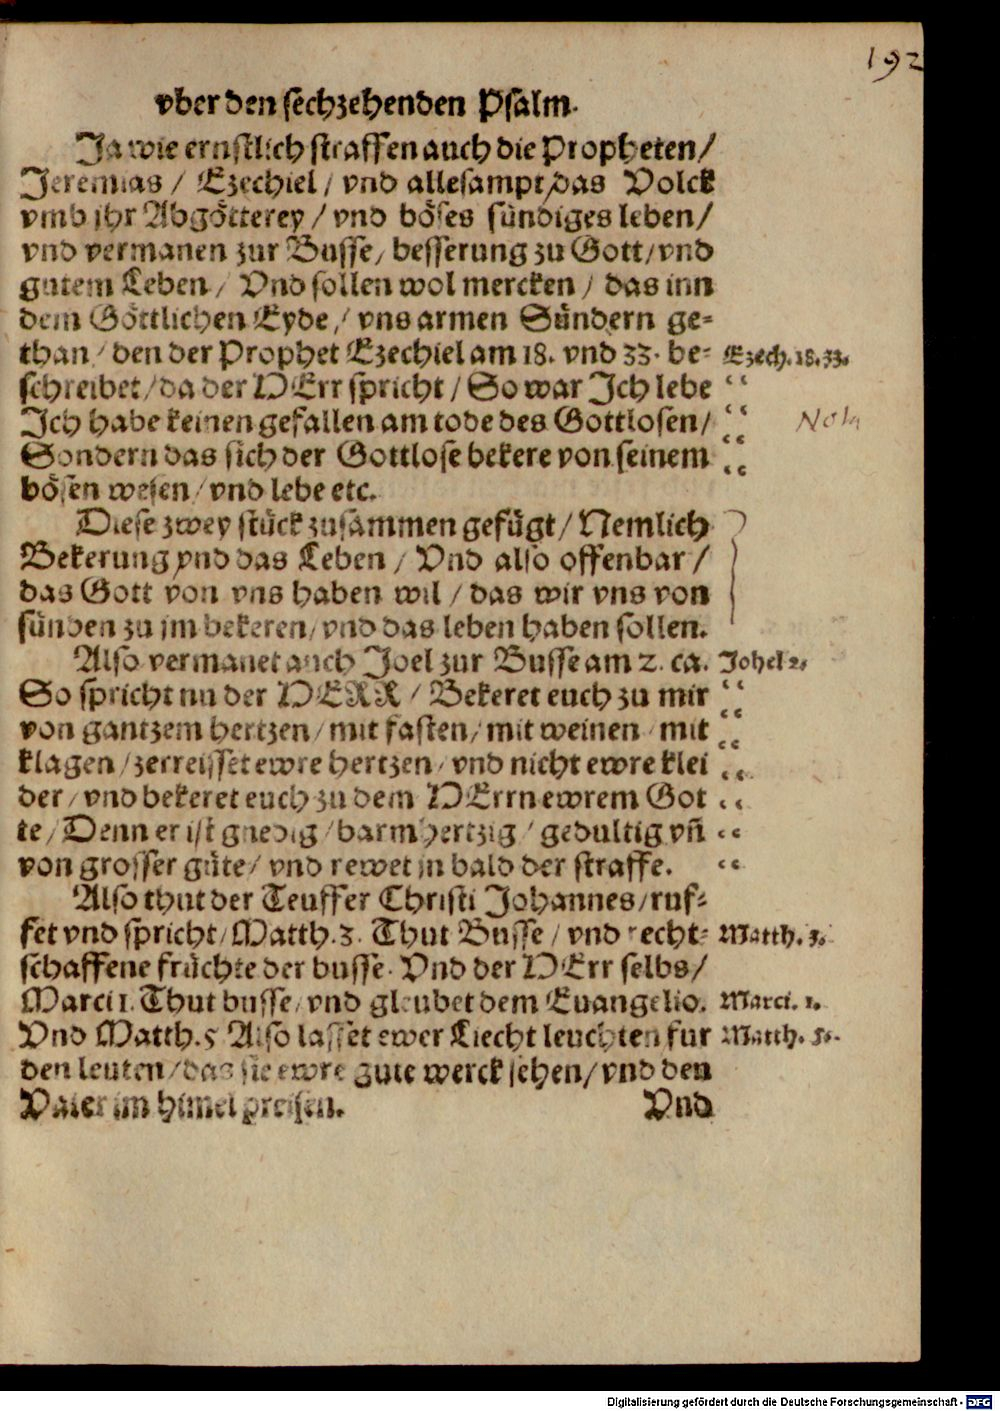 192
vber den sechzehenden Psalm.
Ja wie ernstlich straffen auch die Propheten/
Jeremias / Ezechiel / vnd allesampt/das Volck
vmb jhr Abgötterey / vnd böses sündiges leben/
vnd vermanen zur Busse/ besserung zu Gott/vnd
gutem Leben / Vnd sollen wol mercken / das inn
dem Göttlichen Eyde / vns armen Sündern ge-
than / den der Prophet Ezechiel am 18. vnd 33. be- Ezech. 18. 33.
schreibet/da der HErr spricht / So war Ich lebe
Ich habe keinen gefallen am tode des Gottlosen/ Nota
Sondern das sich der Gottlose bekere von seinem
bösen wesen/vnd lebe etc.
Diese zwey stück zusammen gefügt / Nemlich
Bekerung vnd das Leben / Vnd also offenbar /
das Gott von vns haben wil / das wir vns von
sünden zu jm bekeren/vnd das leben haben sollen.
Also vermanet auch Joel zur Busse am 2. ca. Johel 2.
So spricht nu der HERR / Bekeret euch zu mir
von gantzem hertzen/mit fasten/mit weinen/mit
klagen/zerreisset ewre hertzen/vnd nicht ewre klei
der/vnd bekeret euch zu dem HErrn ewrem Got
te/Denn er ist gnedig/barmhertzig/gedultig vñ
von grosser güte/ vnd rewet jn bald der straffe.
Also thut der Teuffer Christi Johannes/ruf-
fet vnd spricht/Matth.3. Thut Busse/vnd recht- Matth. 3.
schaffene früchte der busse. Vnd der HErr selbs/
Marci 1. Thut busse/vnd gleubet dem Euangelio. Marci. 1.
Vnd Matth.5 Also lasset ewer Liecht leuchten fur Matth. 5.
den leuten/das sie ewre gute werck sehen/vnd den
Vater im himel preisen. Vnd
Digitalisierung gefördert durch die Deutsche Forschungsgemeinschaft - DFG